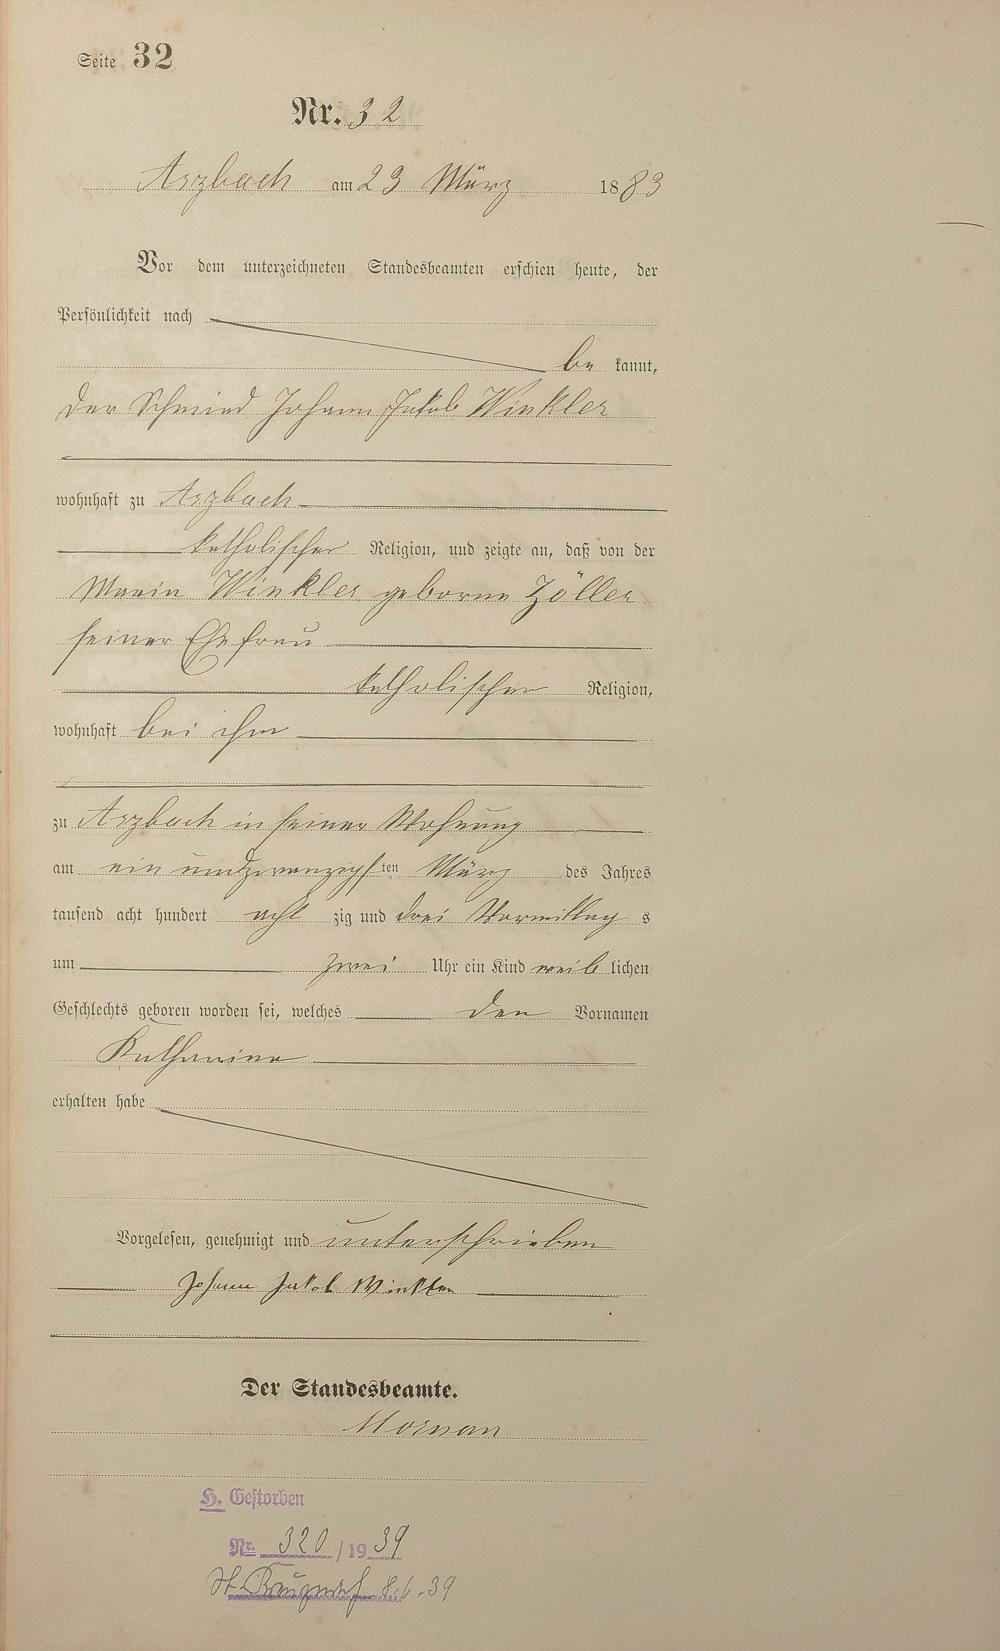 Seite 32
Nr. 32
Arzbach am 23 März 1883
Vor dem unterzeichneten Standesbeamten erschien heute, der
Persönlichkeit nach
be kannt,
der Schmied Johann Jakob Winkler
wohnhaft zu Arzbach
katholischer Religion, und zeigte an, daß von der
Maria Winkler geborne Zöller
seiner Ehefrau
katholischer Religion,
wohnhaft bei ihm
zu Arzbach in seiner Wohnung
am ein undzwanzigsten März des Jahres
tausend acht hundert acht zig und drei Vormittag s
um zwei Uhr ein Kind weib lichen
Geschlechts geboren worden sei, welches den Vornamen
Katharina
erhalten habe
Vorgelesen, genehmigt und unterschrieben
Johann Jakob Winkler
Der Standesbeamte.
H. Gestorben
Nr. 320/1939
8.6.39